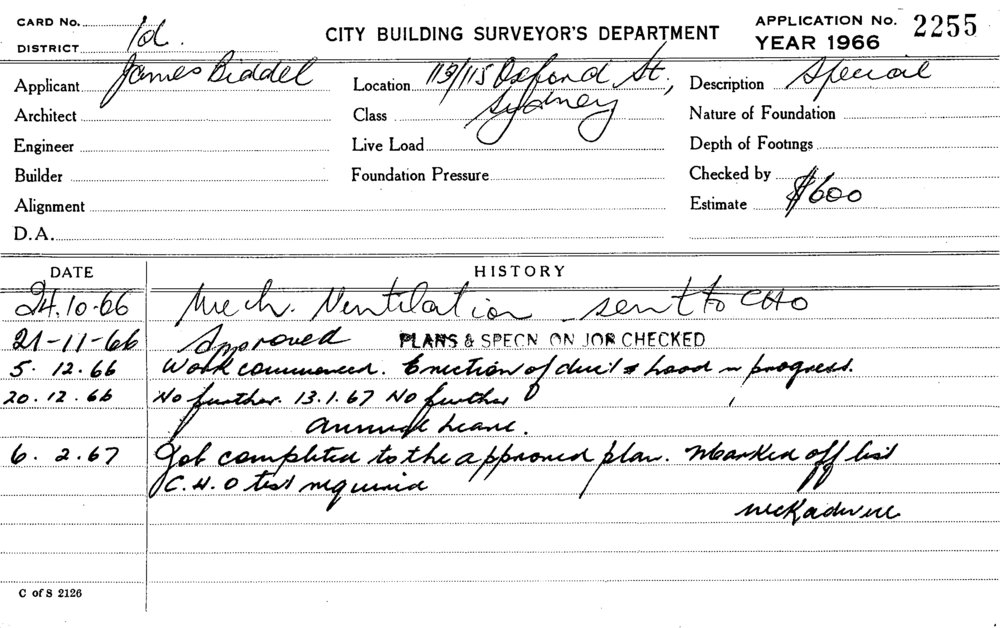 CARD No.
DISTRICT 1d.
CITY BUILDING SURVEYOR'S DEPARTMENT
APPLICATION No. 2255
YEAR 1966
Applicant James Biddel
Location 113/115 Oxford St., Sydney
Description Special
Architect
Class
Nature of Foundation
Engineer
Live Load
Depth of Footings
Builder
Foundation Pressure
Checked by
Alignment
Estimate $600
D.A.
DATE HISTORY
24.10.66 Mech. Ventilation - sent to CHO
21-11-66 Approved PLANS & SPECN ON JOB CHECKED
5. 12. 66 Work commenced. Erection of duct & hood in progress.
20. 12. 66 No further. 13.1.67 No further
Annual Leave.
6. 2. 67 Job completed to the approved plan. Marked off list
C.H.O test required
C of S 2126